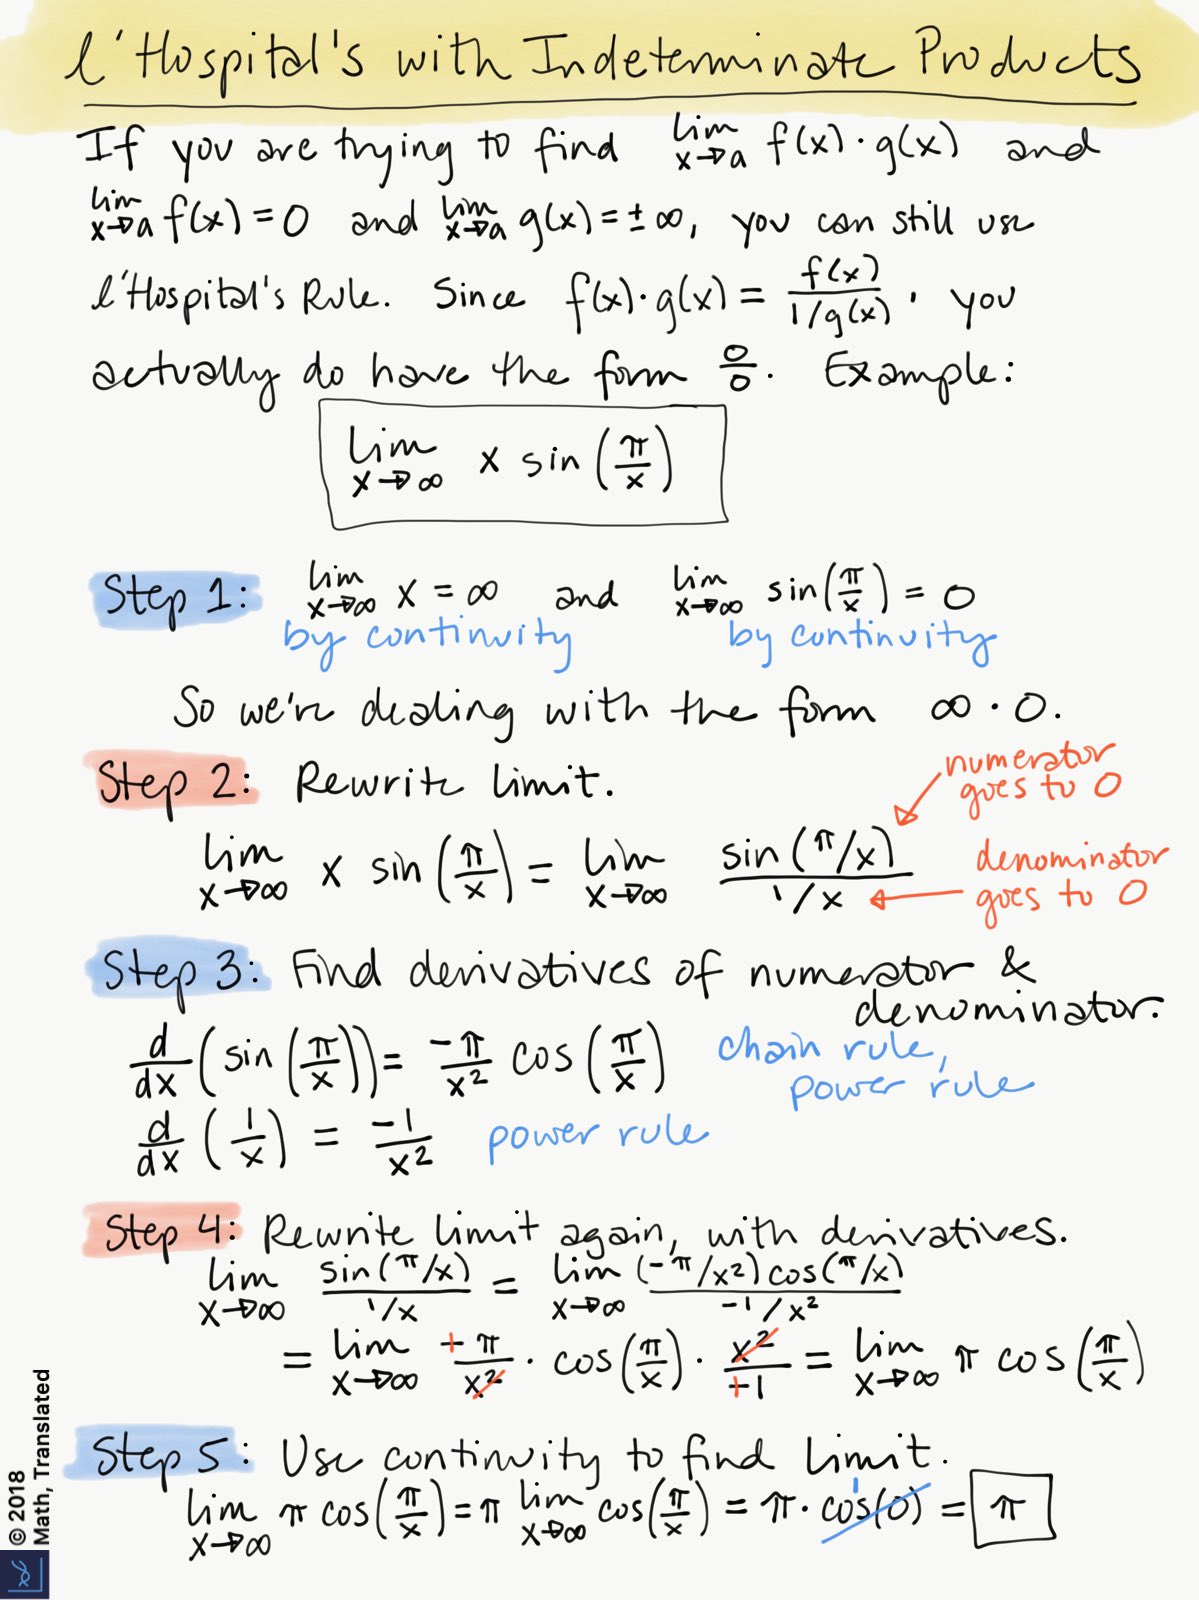 l'Hospital's with Indeterminate Products
If you are trying to find lim x→a f(x)·g(x) and
lim x→a f(x) = 0 and lim x→a g(x) = ±∞, you can still use
l'Hospital's Rule. Since f(x)·g(x) = f(x)/(1/g(x)), you
actually do have the form 0/0. Example:
lim x→∞ x sin(π/x)
Step 1: lim x→∞ x = ∞ and lim x→∞ sin(π/x) = 0
by continuity by continuity
So we're dealing with the form ∞·0.
Step 2: Rewrite limit.
numerator
goes to 0
lim x→∞ x sin(π/x) = lim x→∞ sin(π/x)/(1/x)
denominator
goes to 0
Step 3: Find derivatives of numerator &
denominator.
d/dx (sin(π/x)) = -π/x² cos(π/x) chain rule,
power rule
d/dx (1/x) = -1/x² power rule
Step 4: Rewrite limit again, with derivatives.
lim x→∞ sin(π/x)/(1/x) = lim x→∞ (-π/x²)cos(π/x)/(-1/x²)
= lim x→∞ +π/x² · cos(π/x) · x²/+1 = lim x→∞ π cos(π/x)
Step 5: Use continuity to find limit.
lim x→∞ π cos(π/x) = π lim x→∞ cos(π/x) = π·cos(0) 1 = π
© 2018
Math, Translated